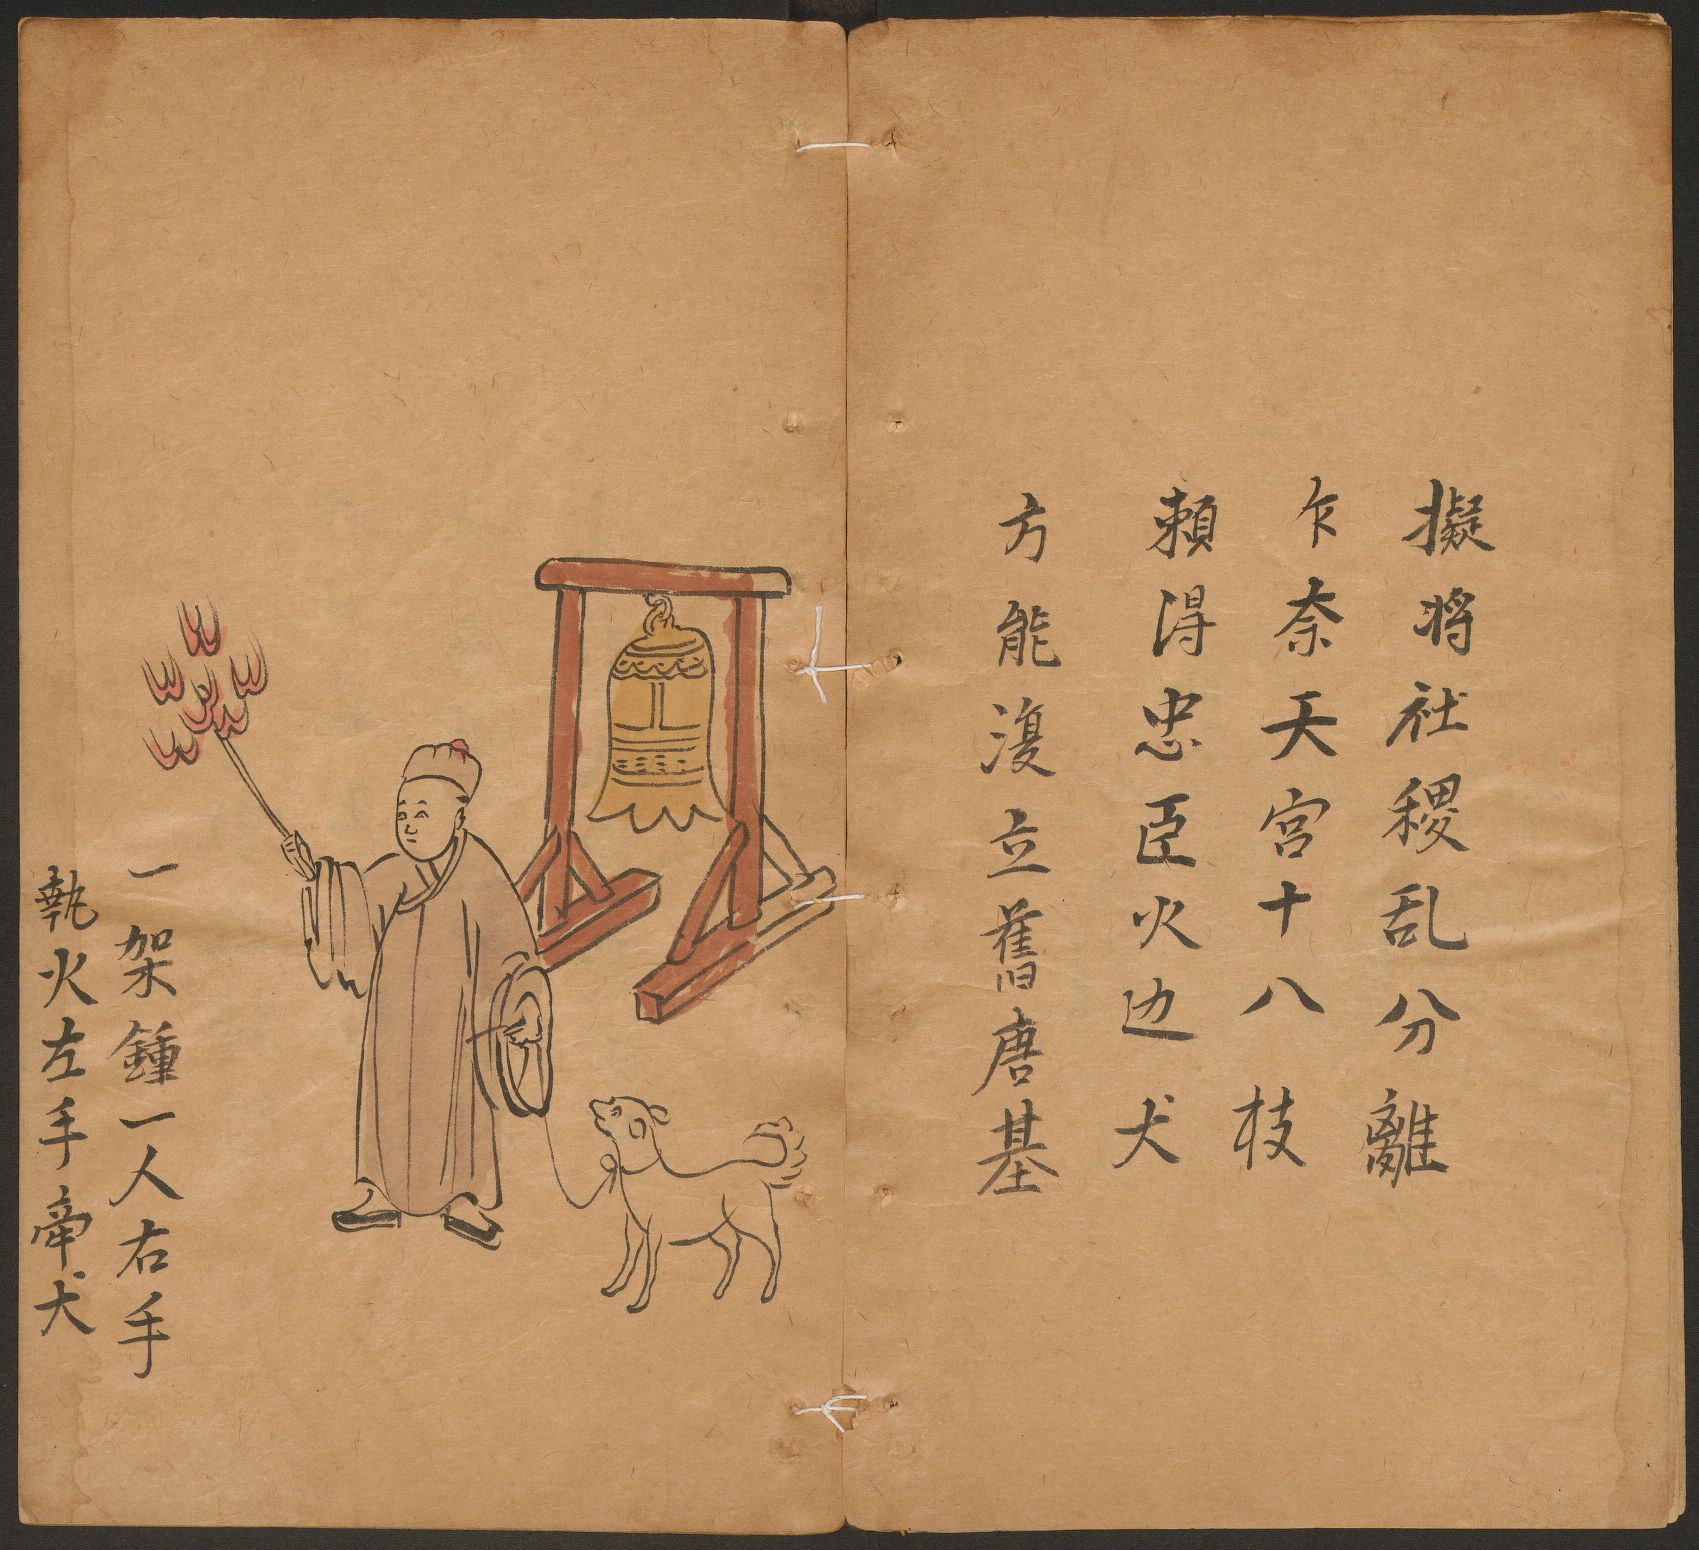 擬将社稷乱分離
乍奈天宫十八枝
頼淂忠臣火边犬
方能復立舊唐基
一架鍾一人右手
執火左手牵犬